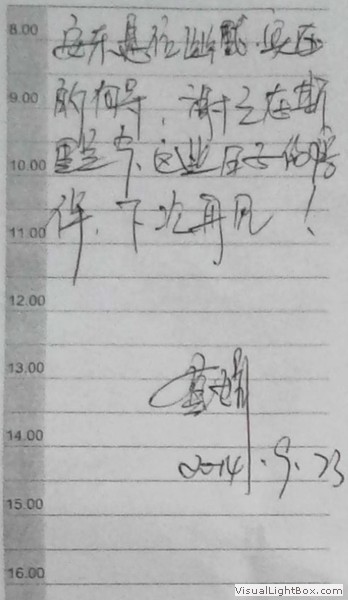 8.00
安东是位幽默,
9.00
的向导,谢之在斯
10.00
里兰卡,这些日子的陪
11.00
伴,下次再见!
12.00
13.00
14.00
2014.9.23
15.00
16.00
VisualLightBox.com